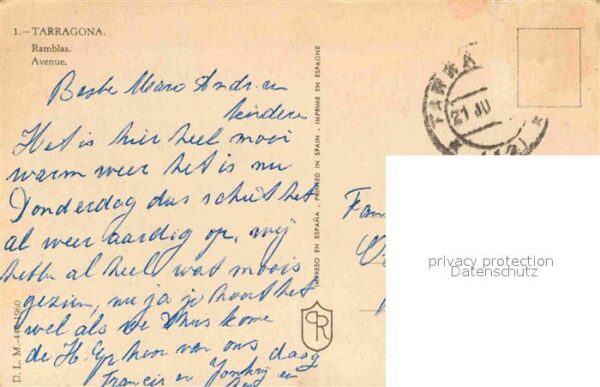 1.—TARRAGONA.
Ramblas.
Avenue.
Beste Andr. en
kindere
Het is hier heel mooi
warm weer het is nu
Donderdag dus schiet het
al weer aardig op, wij
hebbe al heel wat moois
gezien, nu ja je hoort het
wel als we thus kome
de H. Gr hoor van ons daag
Francis en en
D. L. M.
IMPRESO EN ESPAÑA - PRINTED IN SPAIN - IMPRIME EN ESPAGNE
PR
21 JU
Fam
privacy protection
Datenschutz